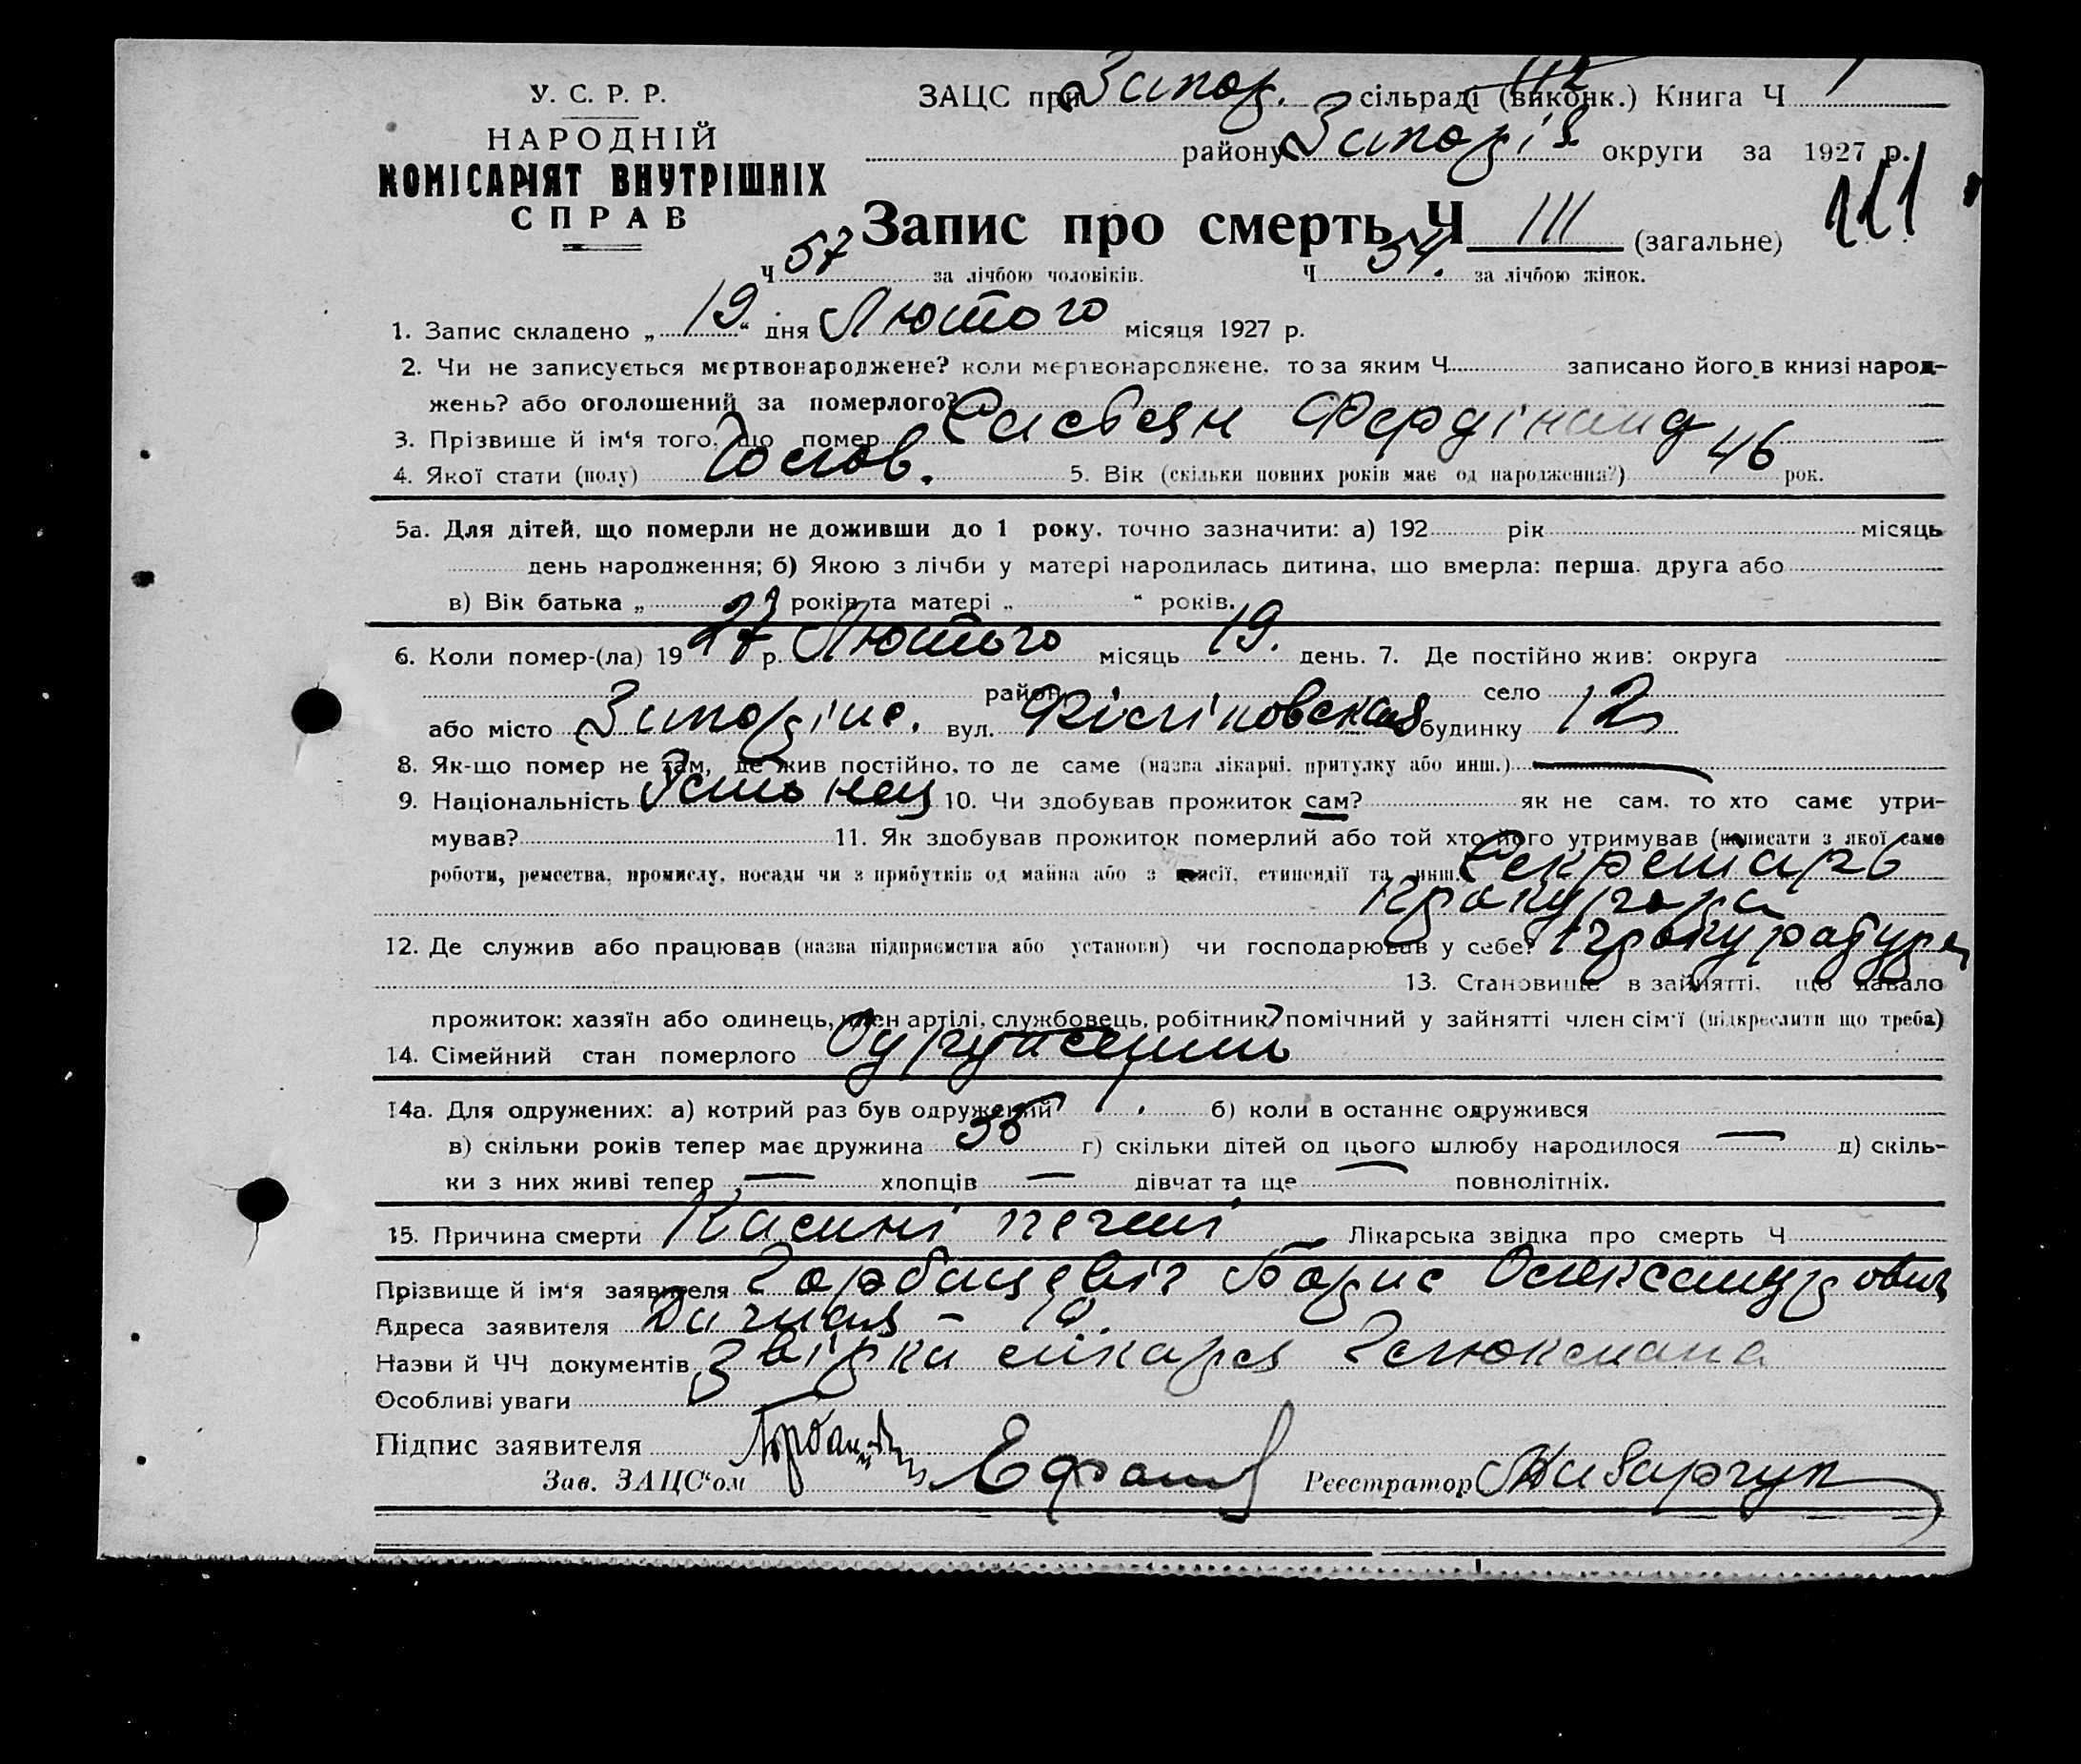 У. С. Р. Р.
НАРОДНІЙ
КОМІСАРІЯТ ВНУТРІШНІХ
СПРАВ
ЗАЦС при Запор. сільраді (виконк.) Книга Ч 1
району Запоріз округи за 1927 р.
Запис про смерть Ч 111 (загальне) 111
Ч 57 за лічбою чоловіків. Ч 54. за лічбою жінок.
1. Запис складено „ 19 “ дня Лютого місяця 1927 р.
2. Чи не записується мертвонароджене? коли мертвонароджене, то за яким Ч записано його в книзі народ-
жень? або оголошений за померлого?
3. Прізвище й ім‘я того, що помер Фердінанд
4. Якої стати (полу) Чолов. 5. Вік (скільки повних років має од народження?) 46 рок.
5а. Для дітей, що померли не доживши до 1 року, точно зазначити: а) 192 рік місяць
день народження; б) Якою з лічби у матері народилась дитина, що вмерла: перша, друга або
в) Вік батька „ років та матері „ “ років.
6. Коли помер-(ла) 19 27 р. Лютого місяць 19. день. 7. Де постійно жив: округа
район село
або місто вул. будинку 12
8. Як-що помер не там, де жив постійно, то де саме (назва лікарні, притулку або инш.)
9. Національність Эстонец 10. Чи здобував прожиток сам? як не сам, то хто саме утри-
мував? 11. Як здобував прожиток померлий або той хто його утримував (написати з якої саме
роботи, ремества, промислу, посади чи з прибутків од майна або з пенсії, стипендії та инш. Секретарь
прокурора
12. Де служив або працював (назва підприємства або установи) чи господарював у себе?
13. Становище в зайнятті, що давало
прожиток: хазяїн або одинець, член артілі, службовець, робітник, помічний у зайнятті член сім‘ї (підкреслити що треба)
14. Сімейний стан померлого Одружений
14а. Для одружених: а) котрий раз був одружений 1. б) коли в останнє одружився
в) скільки років тепер має дружина г) скільки дітей од цього шлюбу народилося — д) скіль-
ки з них живі тепер — хлопців — дівчат та ще — повнолітніх.
15. Причина смерти Лікарська звідка про смерть Ч
Прізвище й ім‘я заявителя Горбацевіч Борис Олександрович
Адреса заявителя Дачная - 10.
Назви й ЧЧ документів Звідка лікаря
Особливі уваги
Підпис заявителя
Зав. ЗАЦС‘ом Реєстратор